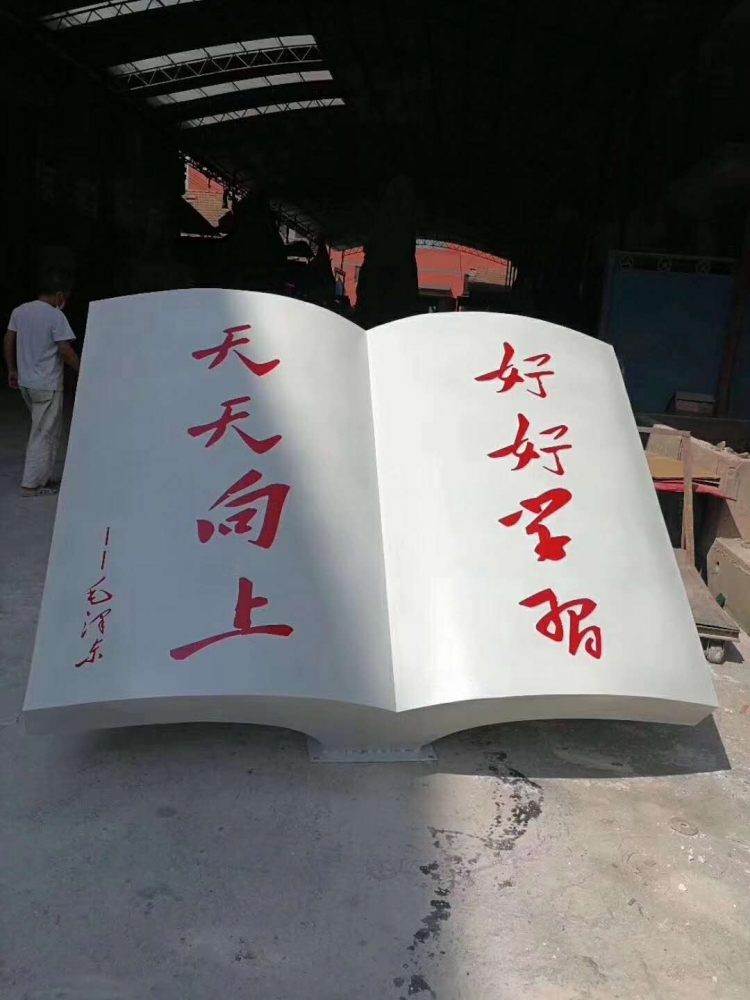 好好学习
天天向上
——毛泽东